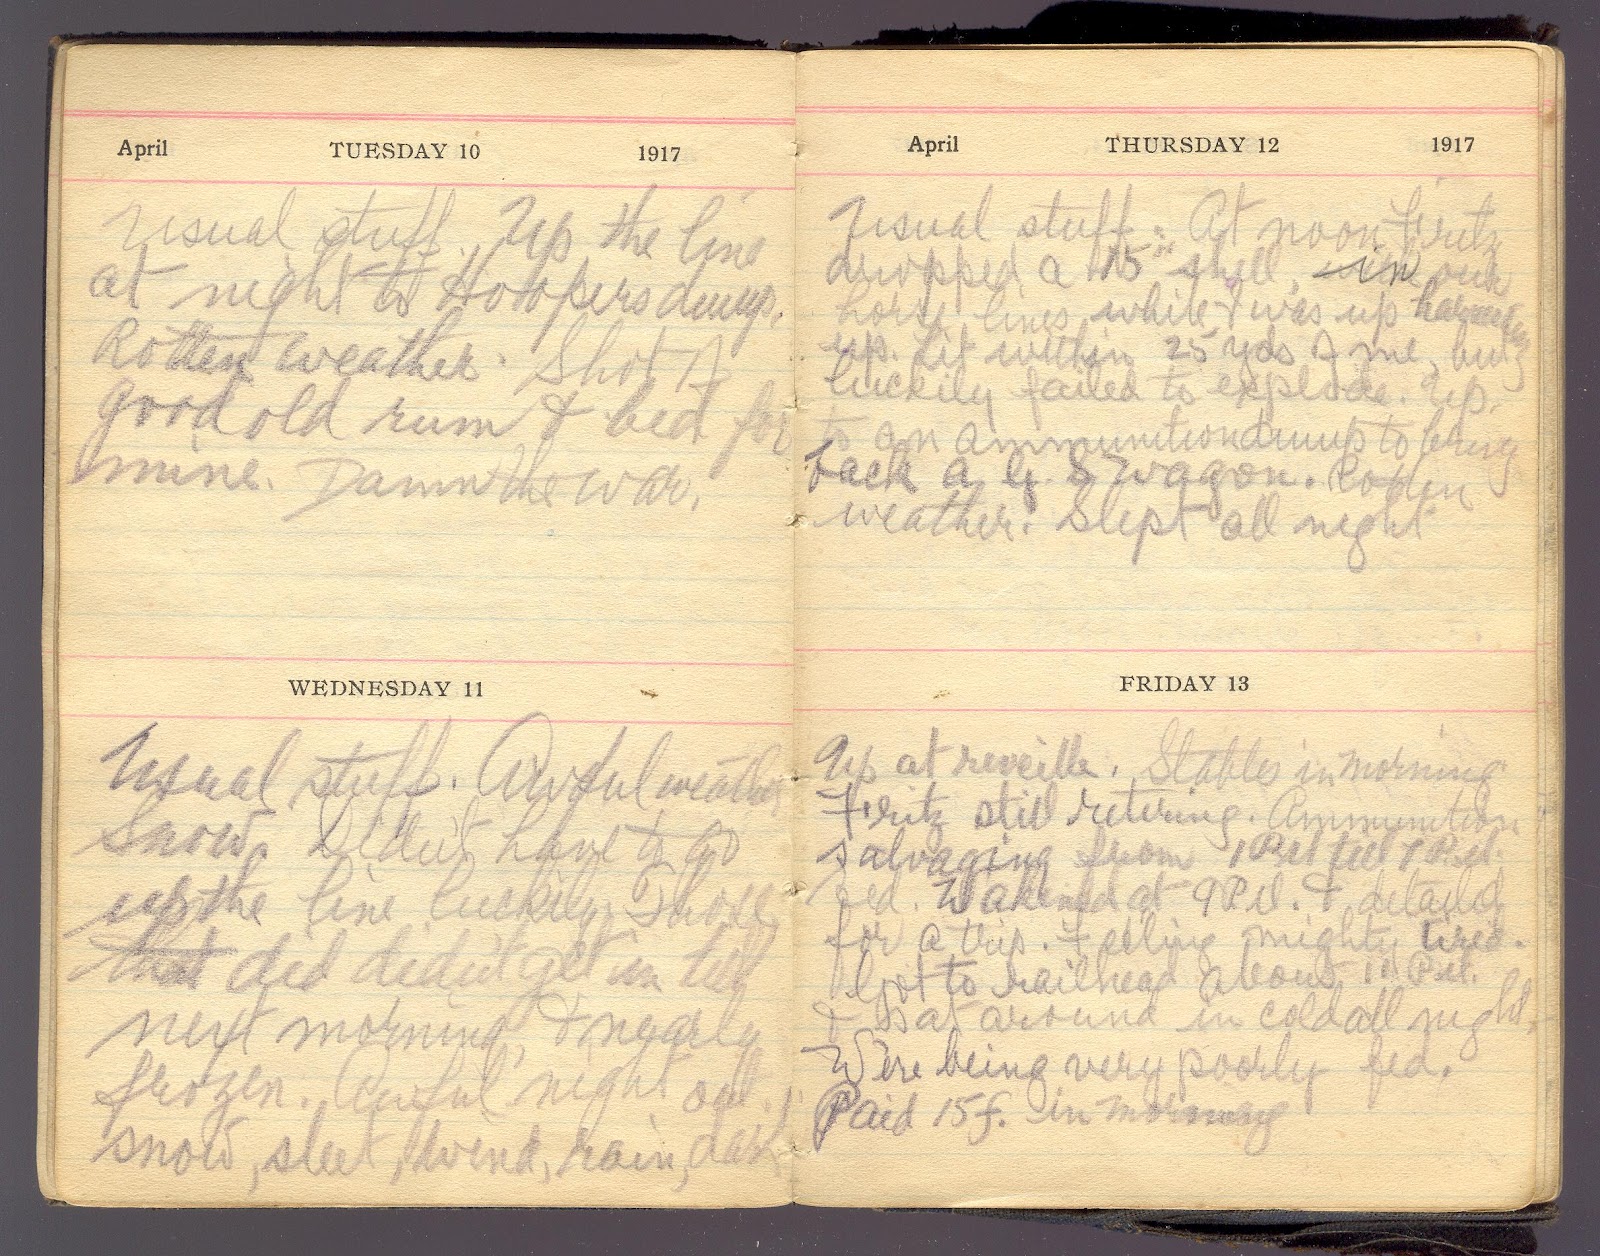 April TUESDAY 10 1917
Usual stuff. Up the line
at night to Hoopers dump.
Rotten weather. Shot of
good old rum & bed for
mine. Damn the war.
WEDNESDAY 11
Usual stuff. Awful weather
Snow. Didn't have to go
up the line luckily. Those
that did didn't get in till
next morning, & nearly
frozen. Awful night out.
snow, sleet, wind, rain, dark
April THURSDAY 12 1917
Usual stuff. At noon Fritz
dropped a 15" shell, in our
horse lines while I was up
up. Lit within 25 yds of me, but
luckily failed to explode. Up.
to an ammunition dump to bring
back a G. S wagon. Rotten
weather. Slept all night
FRIDAY 13
Up at reveille. Stables in morning
Fritz still retiring. Ammunition
salvaging from 1 P.M till 7 P.M.
Wakened at 9 P.M. & detailed
for a trip. Feeling mighty tired.
Got to railhead about 11 P.M.
& sat around in cold all night.
We're being very poorly fed.
Paid 15f. in morning